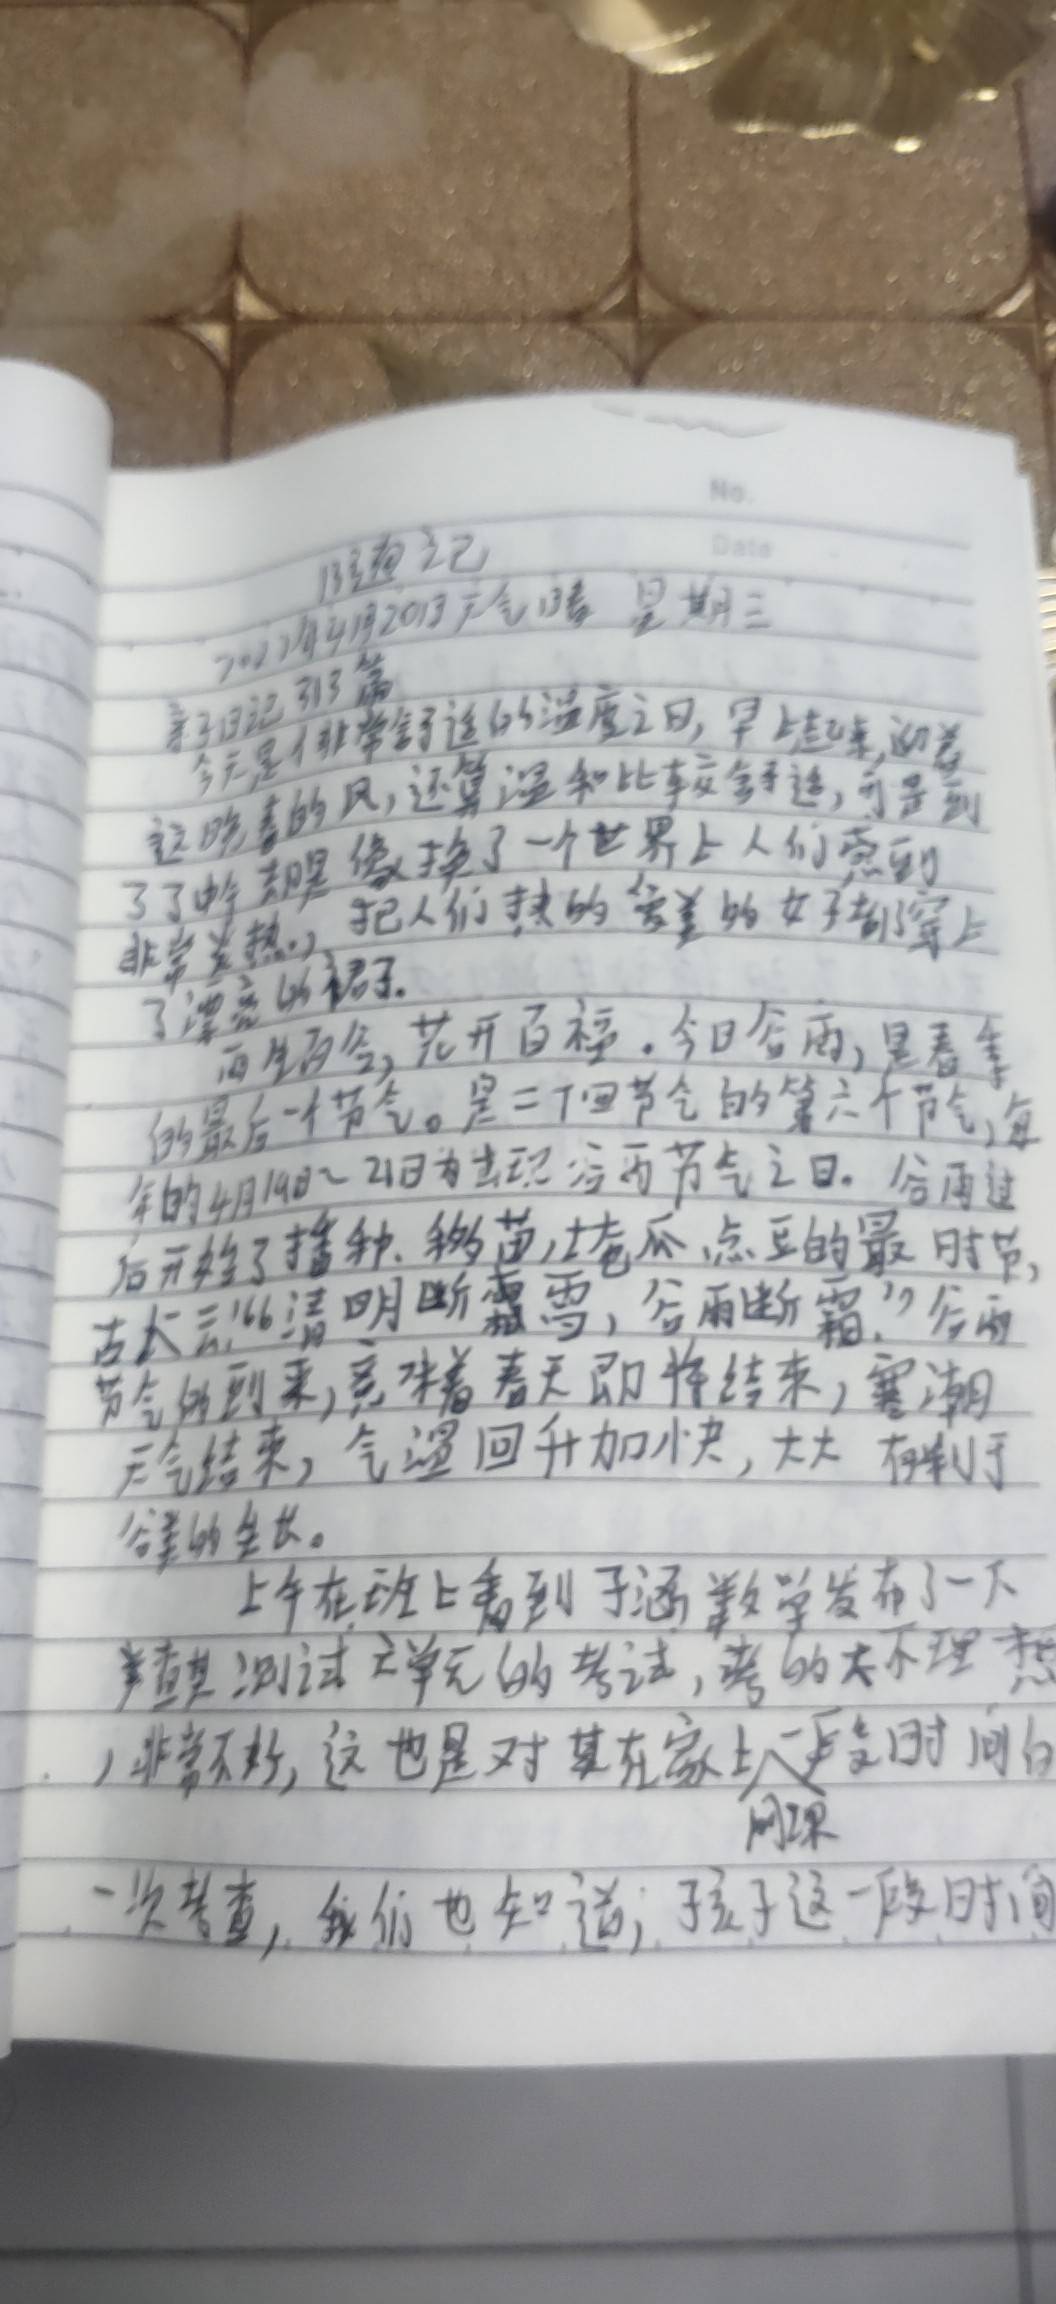 No.
Date
随记
2022年4月20日天气晴 星期三
亲子日记313篇
今天是个非常舒适的温度之日,早上起来,迎着
这晚春的风,还算温和比较舒适,可是到
了了中午就是像换了一个世界上人们感到
非常炎热,把人们热的爱美的女子都穿上
了漂亮的裙子。
雨生百谷,花开百福。今日谷雨,是春季
的最后一个节气。是二十四节气的第六个节气,每
年的4月19日~21日为出现谷雨节气之日。谷雨过
后开始了播种、移苗,埯瓜、点豆的最时节,
古人云:“清明断雪,谷雨断霜,”谷雨
节气的到来,意味着春天即将结束,寒潮
天气结束,气温回升加快,大大有利于
谷类的生长。
上午在班上看到子涵数学发布了一下
测试之单元的考试,考的太不理想
,非常不好,这也是对其在家上网课一段时间的
一次考查,我们也知道;孩子这一段时间